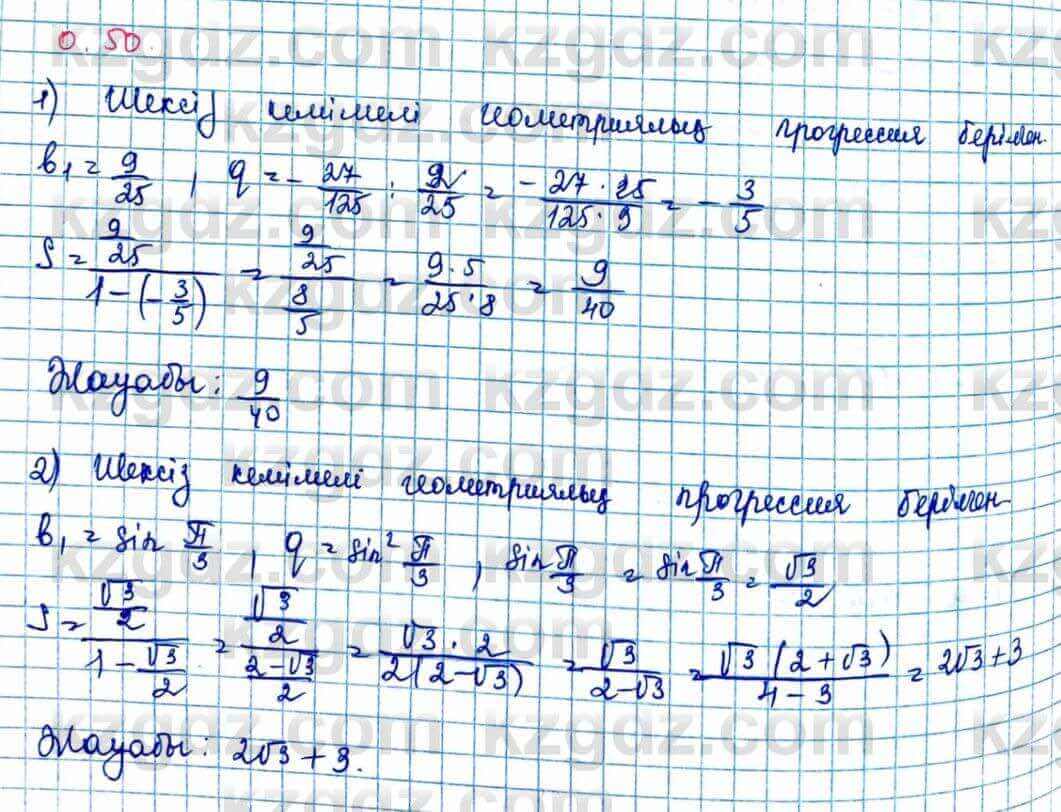 0.50.
1) Шексіз кемімелі геометриялық прогрессия берілген.
b₁ = 9/25 , q = -27/125 : 9/25 = -27·25/125·9 = -3/5
S = 9/25 / 1-(-3/5) = 9/25 / 8/5 = 9·5/25·8 = 9/40
Жауабы: 9/40
2) Шексіз кемімелі геометриялық прогрессия берілген.
b₁ = sin π/3 , q = sin² π/3 , sin π/3 = sin π/3 = √3/2
S = √3/2 / 1-√3/2 = √3/2 / 2-√3/2 = √3·2/2(2-√3) = √3/2-√3 = √3(2+√3)/4-3 = 2√3+3
Жауабы: 2√3+3.
kzgdz.com